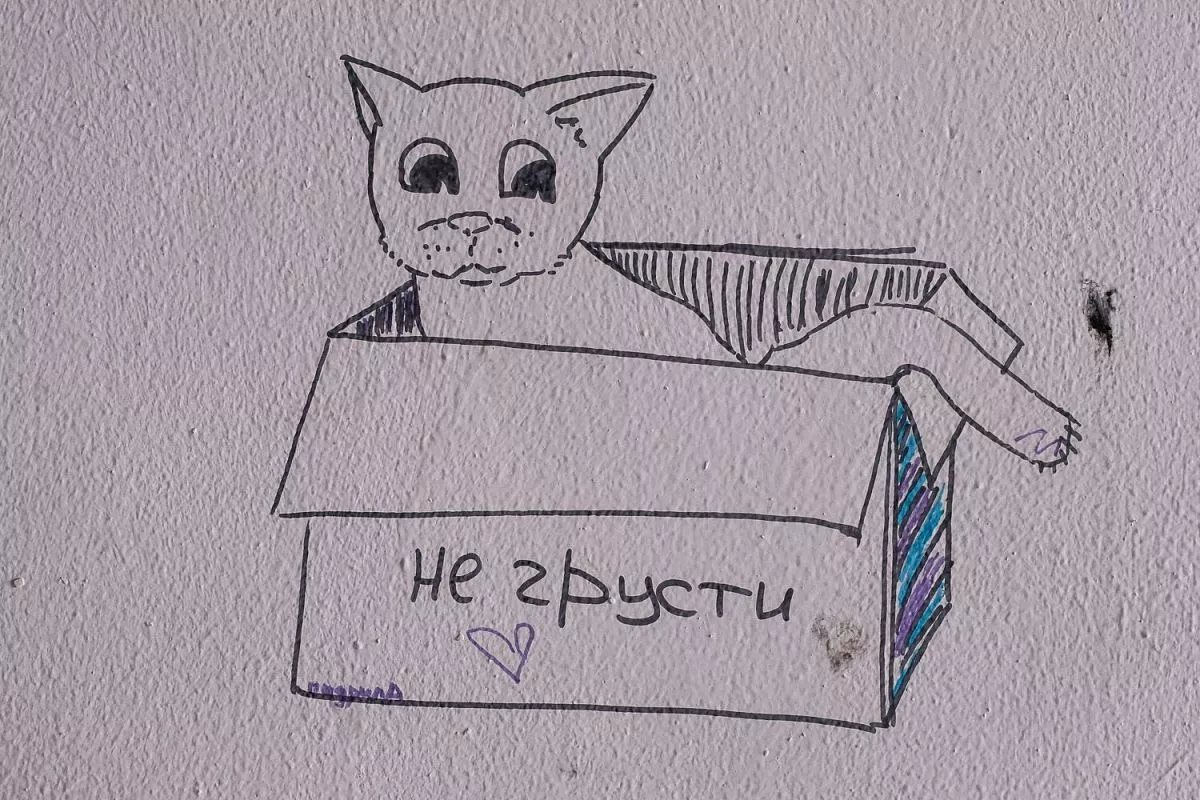 не грусти